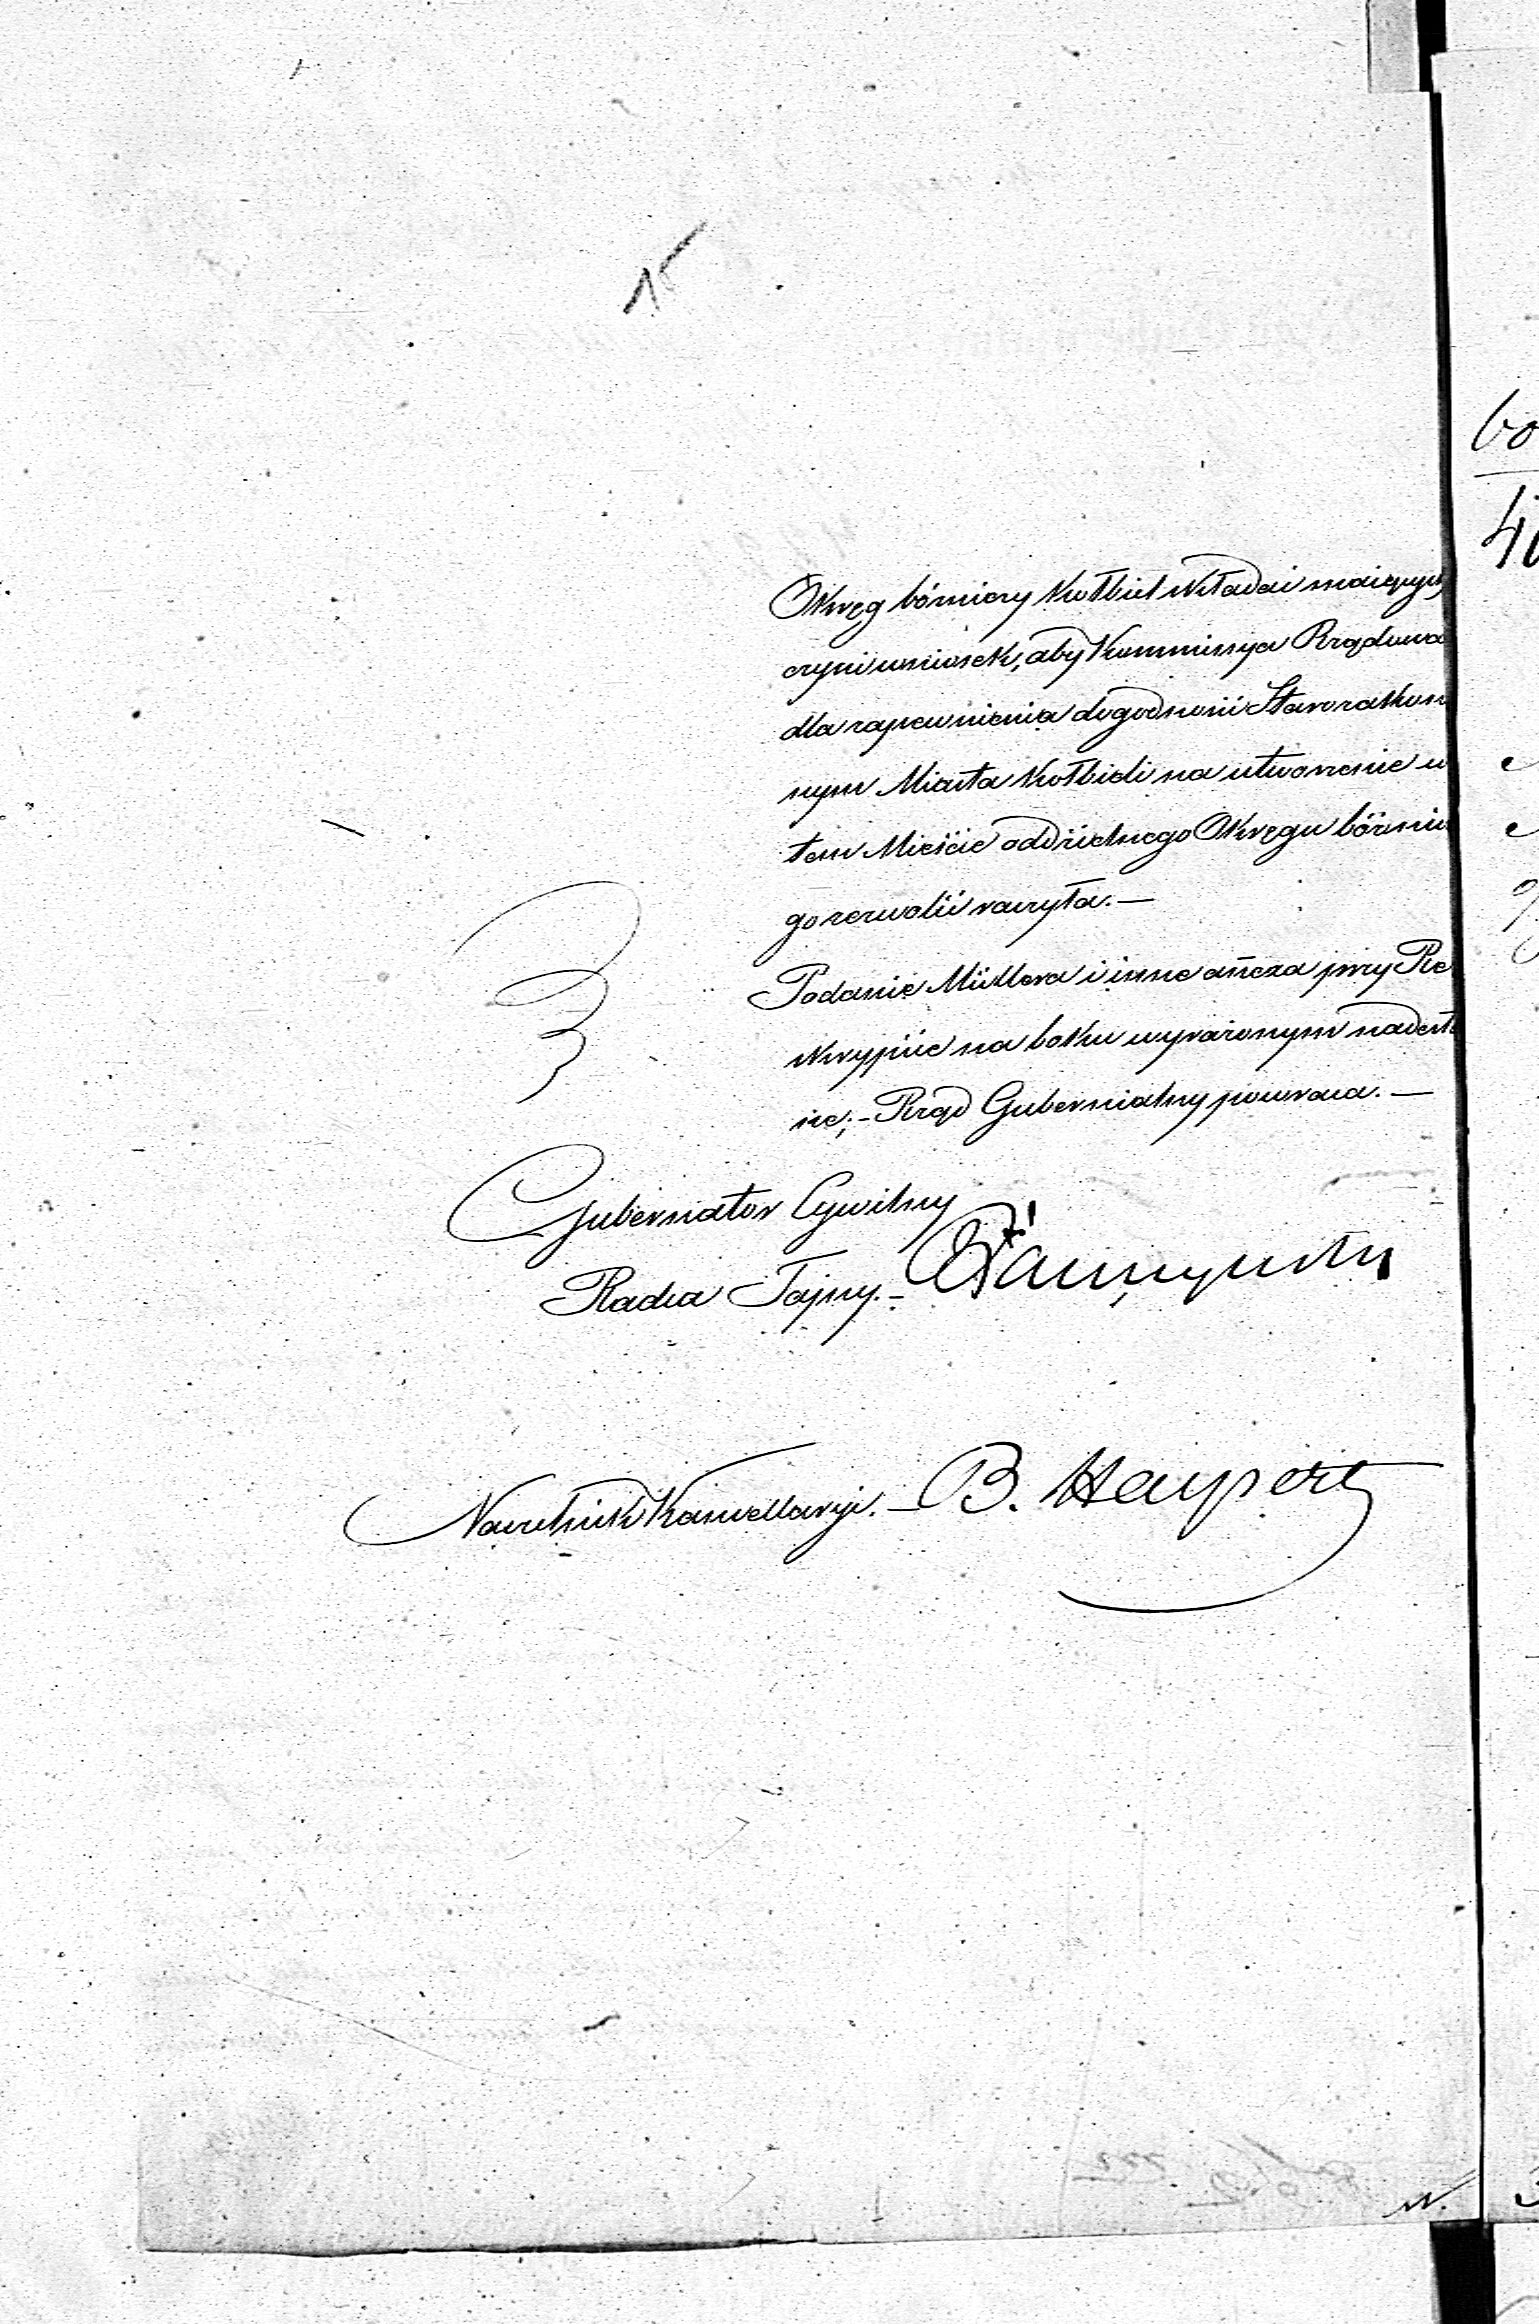 15
Okręg bóżniczy Kołbiel składać maiących,
czyni wniosek, aby Kommissya Rządowa
dla zapewnienia dogodności Starozakon
nym Miasta Kołbieli na utworzenie w
tem Mieście oddzielnego Okręgu bóżnicze
go zezwolić raczyła.—
Podanie Müllera i inne añexa przy Re
skrypcie na boku wyrażonym nadesła
ne;- Rząd Gubernialny powraca.—
Gubernator Cywilny
Radca Tajny.-
Naczelnik Kancellaryi.— B. Haupert